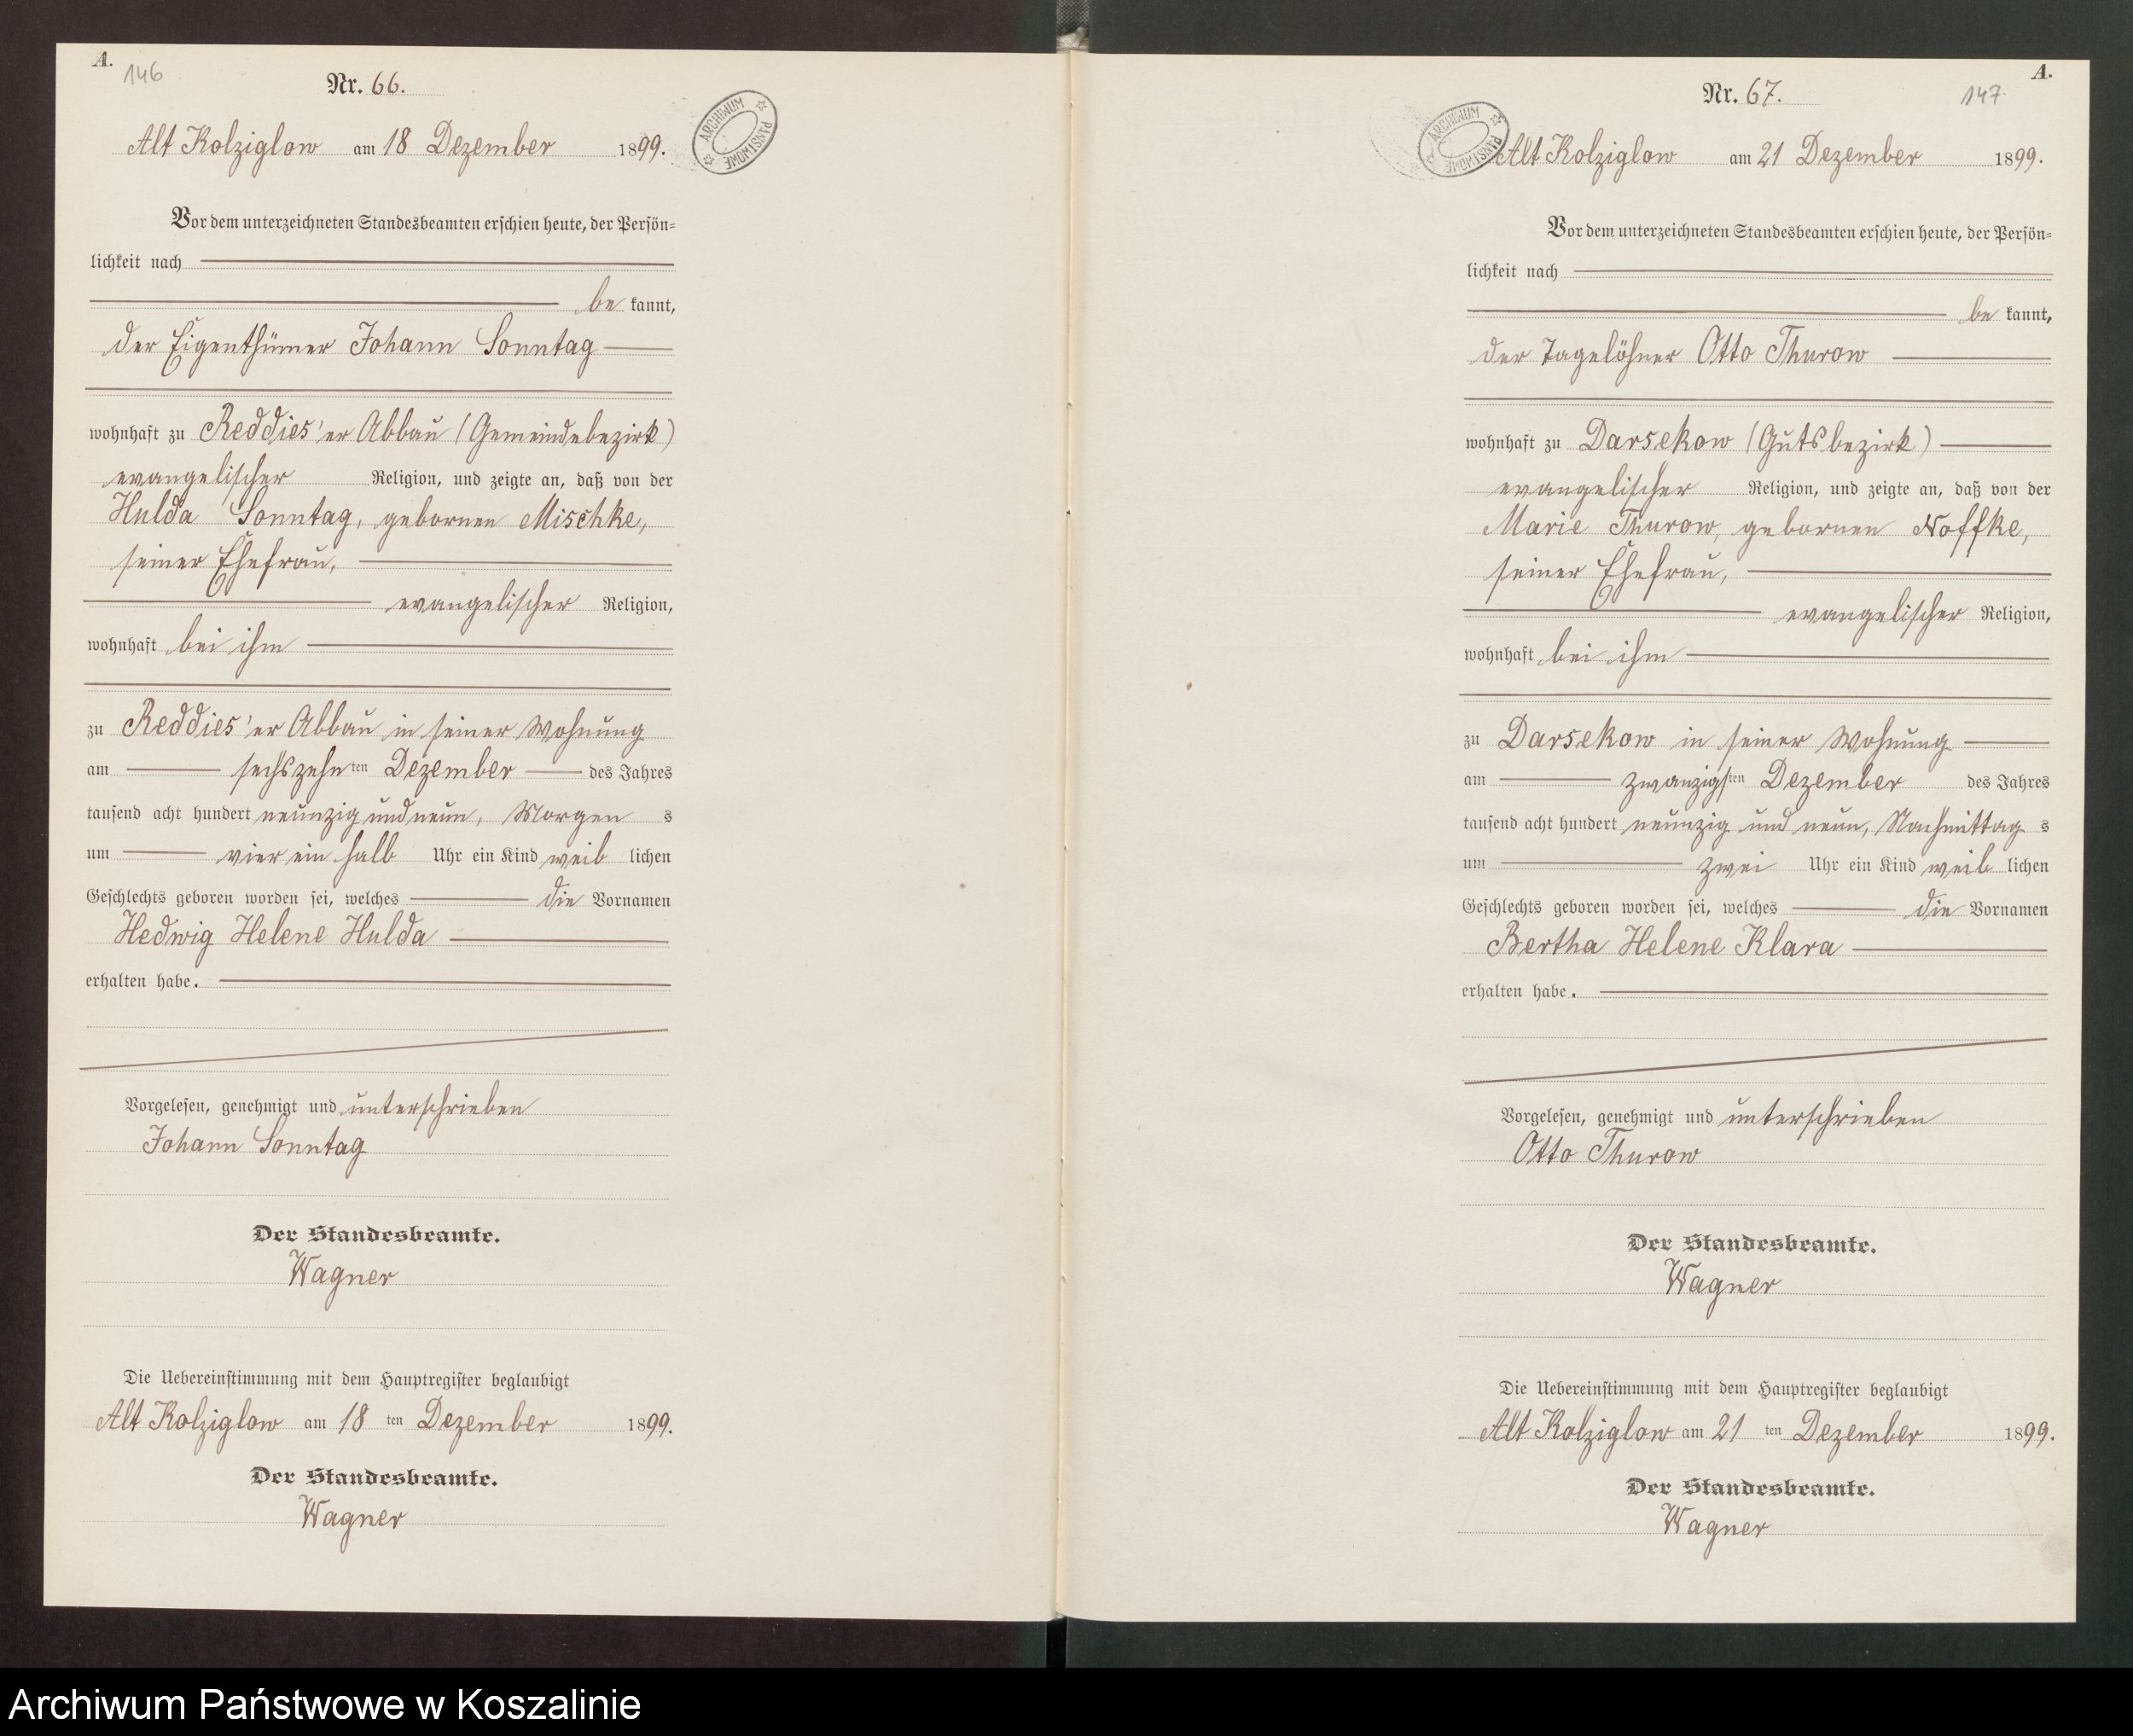 A.
146
Nr. 66.
ARCHIWUM PAŃSTWOWE
Alt Kolziglow am 18 Dezember 1899.
Vor dem unterzeichneten Standesbeamten erschien heute, der Persön=
lichkeit nach
be kannt,
der Eigenthümer Johann Sonntag
wohnhaft zu Reddies'er Abbau (Gemeindebezirk)
evangelischer Religion, und zeigte an, daß von der
Hulda Sonntag, gebornen Mischke,
seiner Ehefrau,
evangelischer Religion,
wohnhaft bei ihm
zu Reddies'er Abbau in seiner Wohnung
am sechszehn ten Dezember des Jahres
tausend acht hundert neunzig und neun, Morgen s
um vier ein halb Uhr ein Kind weib lichen
Geschlechts geboren worden sei, welches die Vornamen
Hedwig Helene Hulda
erhalten habe.
Vorgelesen, genehmigt und unterschrieben
Johann Sonntag
Der Standesbeamte.
Wagner
Die Uebereinstimmung mit dem Hauptregister beglaubigt
Alt Kolziglow am 18 ten Dezember 1899.
Der Standesbeamte.
Wagner
A.
147
Nr. 67.
ARCHIWUM PAŃSTWOWE
Alt Kolziglow am 21 Dezember 1899.
Vor dem unterzeichneten Standesbeamten erschien heute, der Persön=
lichkeit nach
be kannt,
der Tagelöhner Otto Thurow
wohnhaft zu Darsekow (Gutsbezirk)
evangelischer Religion, und zeigte an, daß von der
Marie Thurow, gebornen Noffke,
seiner Ehefrau,
evangelischer Religion,
wohnhaft bei ihm
zu Darsekow in seiner Wohnung
am zwanzigsten Dezember des Jahres
tausend acht hundert neunzig und neun, Nachmittag s
um zwei Uhr ein Kind weib lichen
Geschlechts geboren worden sei, welches die Vornamen
Bertha Helene Klara
erhalten habe.
Vorgelesen, genehmigt und unterschrieben
Otto Thurow
Der Standesbeamte.
Wagner
Die Uebereinstimmung mit dem Hauptregister beglaubigt
Alt Kolziglow am 21 ten Dezember 1899.
Der Standesbeamte.
Wagner
Archiwum Państwowe w Koszalinie